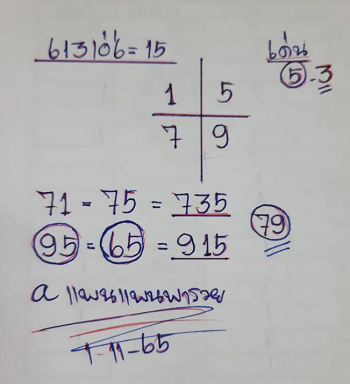 613106 = 15
เด่น
5 - 3
1 5
7 9
71 - 75 = 735
95 = 65 = 915
79
a แพนแพนพารวย
1-11-65